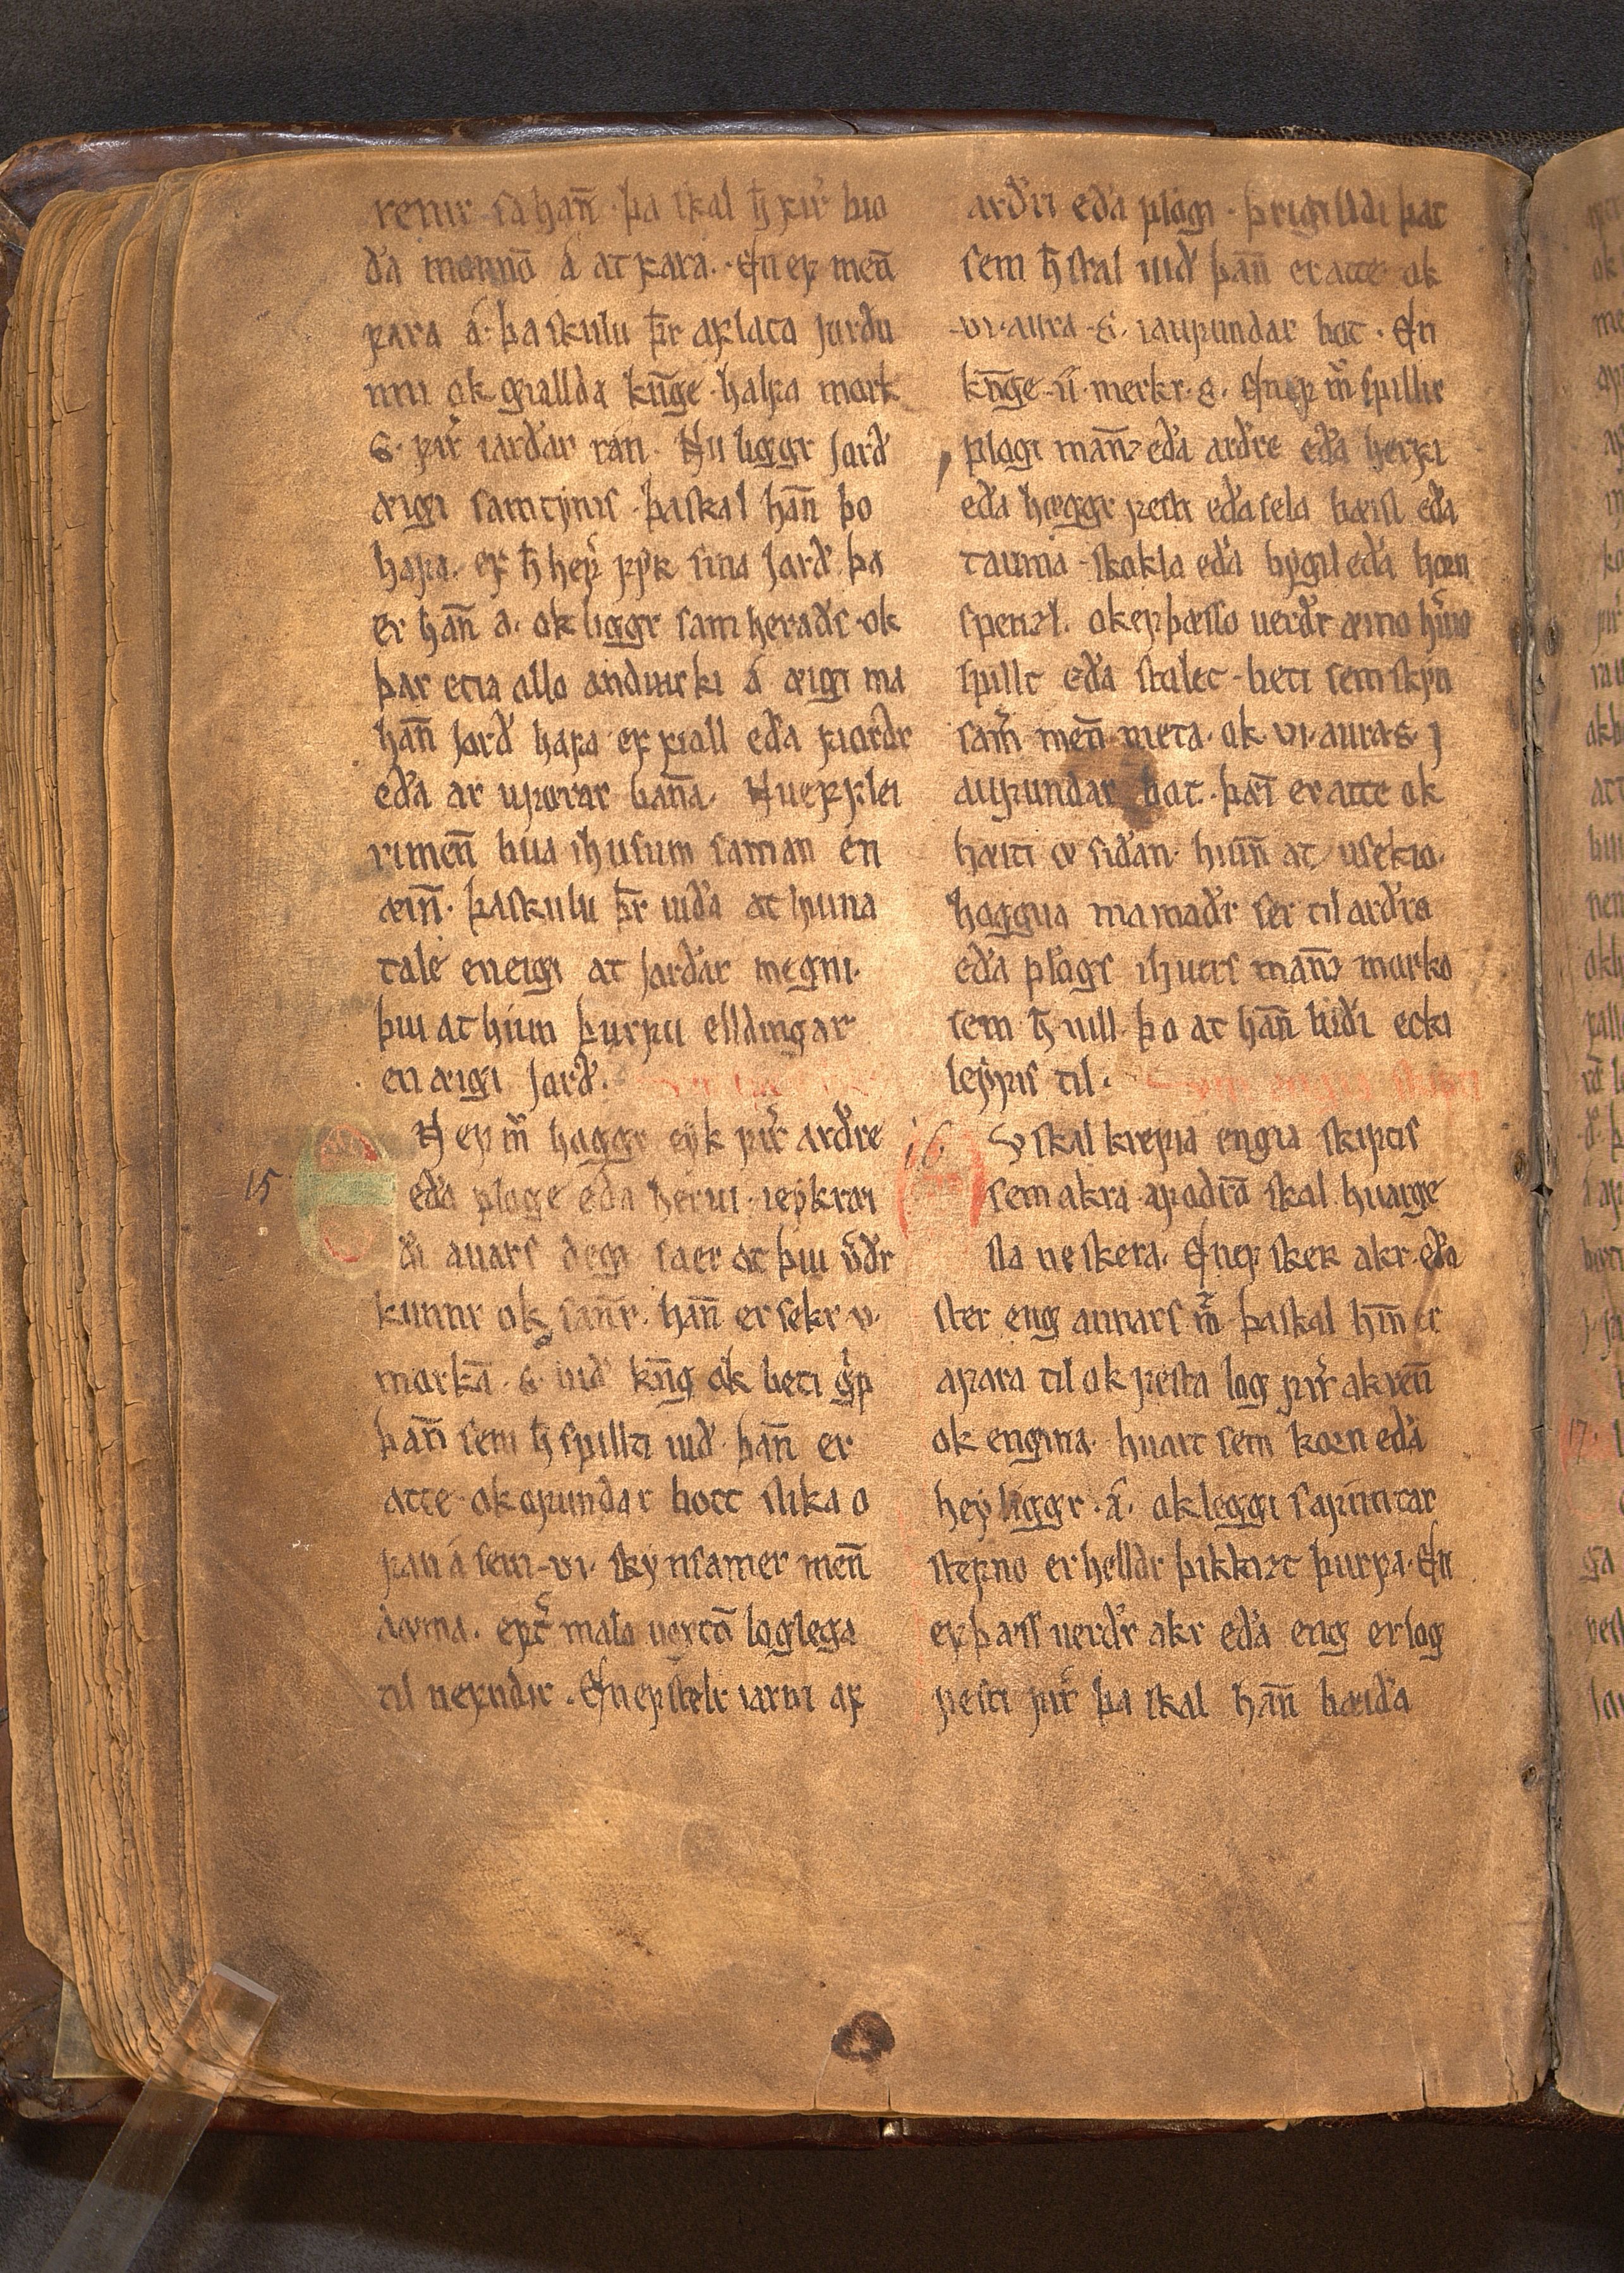 renir sa han̄. þa skal h̄ fir͛ bio
ða monnō á at fara. En ef men̄
fara á. þa skulu þr̄ aflata jorðu
nni ok giallda kn̄ge halfa mork
ꞩ. fir͛ iarðar ran. Nu liggr jorð
æigi samtynis. þa skal han̄ þo
hafa. ef h̄ hef͛ fyk sina jarð þa
er han̄ a. ok liggr sam heraðs ok
þar etia allo anduirki á æigi ma
han̄ jorð hafa ef fiall eða fiorðr
eða ar ufærar ban̄a. Nu ef flei
rimen̄ bua i husum saman en
æin̄. þa skulu þr̄ uiða at hiuna
tale en eigi at jarðar megni.
þui at hiun þurfu elldingar
en æigi jorð.
15
N ef m̄ hoggr eyk fir͛ arðre
eða ploge eða herui. i eykrai
ði annars degi saer at þui uerðr
kunnr ok san̄r. han̄ er sekr v.
morkā. ꞩ. uið kn̄g ok beti g͛p
þan̄ sem h̄ spillti uið. þan̄ er
atte. ok ofundar bott slika o
fan á sem. vi. skynsamer men̄
dæma. ept͛ malo uextū loglega
til nefndir. En ef stelr iarni af
arðri eða plogi. þa gialldi þat
sem h̄ stal uið þan̄ er atte ok
vi. aura. ꞩ. i aufundar bot. En
kn̄ge. ii. merkr. ꞩ. En ef m̄ spillir
plogi man̄z eða arðre eða herfi
eða hoggr festi eða sela bæisl eða
tauma. skokla eða bygil eða horn
spenzl. ok ef þesso uerðr æino hu͛io
spillt eða stolet. beti sem skyn
sam͛ men̄ meta. ok vi. aura ꞩ. j
aufundar bot. þæi er atte ok
hæiti æ siðan. huin̄ at usekio.
hoggua ma maðr ser til arðrs
eða plogs i huers man̄z morko
sem h̄ uill. þo at han̄ biði ecki
leyfis til.
16
V skal krefia engia skiptis
sem akra. af oðrū skal huarge
sla ne skera. En ef sker akr eða
sler eng annars m̄. þa skal hin̄ er
a fara til ok festa log fir͛ akren̄
ok engina. huart sem korn eða
hey liggr. á. ok leggi sa fimtar
stefno er helldr þikkizt þurfa. En
ef þæss uerðr akr eða eng er log
festi fir͛ þa skal han̄ bæiða
17